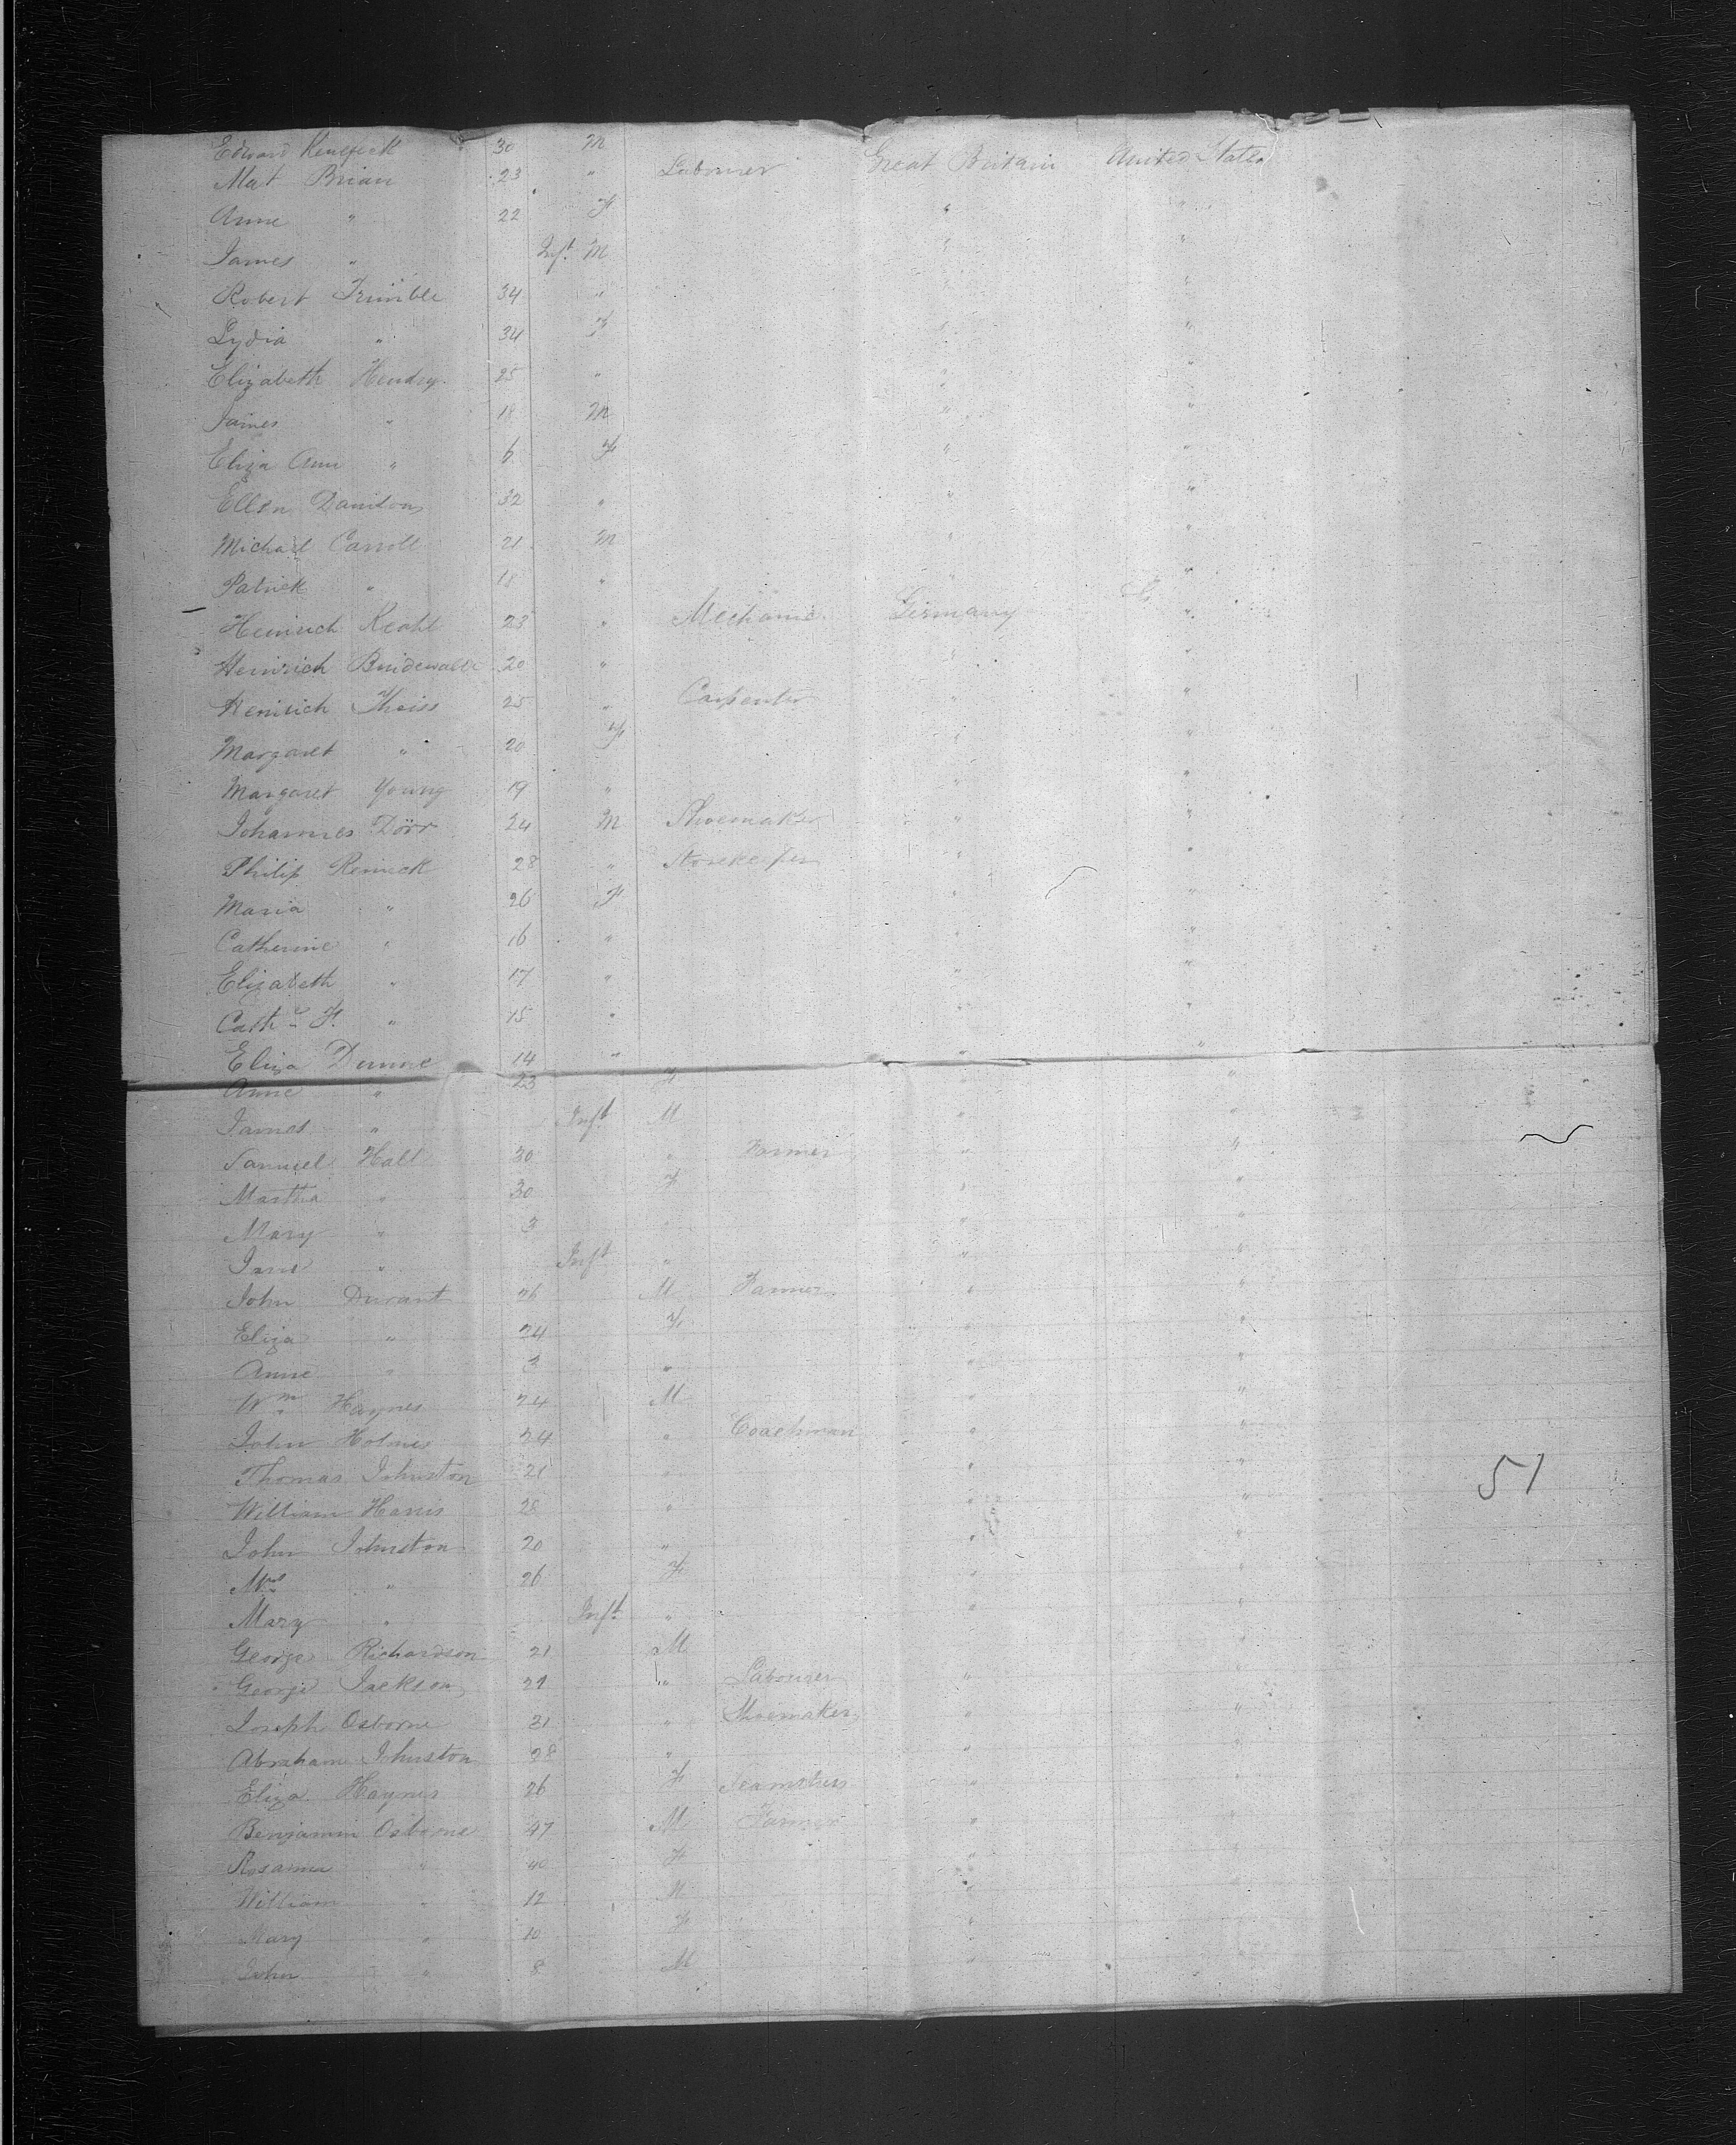 Edward 30 M
Mat Brian 23 " Labourer Great Britain United States
Anne " 22 F " "
James " Inft. M " "
Robert Trimble 34 " " "
Lydia " 34 F " "
Elizabeth Hendry 25 " " "
James " 18 M " "
Eliza Ann " 6 F " "
Ellen 32 " " "
Michael Carroll 21 M " "
Patrick " 18 " " "
Heinrich 23 " Mechanic Germany "
Heinrich 20 " " "
Heinrich Theiss 25 " Carpenter " "
Margaret " 20 F " "
Margaret Young 19 " " "
Johannes Dörr 24 M Shoemaker " "
Philip 28 " Storekeeper " "
Maria " 26 F " "
Catherine " 16 " " "
Elizabeth " 17 " " "
Cathe F. " 15 " " "
Eliza 14 " " "
Anne " 23 F " "
James " Inft M " "
Samuel Hall 30 " Farmer " "
Martha " 30 F " "
Mary " 3 " " "
Jane " Inft " " "
John Durant 26 M Farmer " "
Eliza " 24 F " "
Anne " 3 " " "
Wm Haynes 24 M " "
John Holmes 24 " Coachman " "
Thomas Johnston 21 " " "
51
William Harris 28 " " "
John Johnston 20 " " "
Mrs " 26 F " "
Mary " Inft. " " "
George Richardson 21 M "
George Jackson 21 " Labourer " "
Joseph Osborne 31 " Shoemaker " "
Abraham Johnston 28 " " "
Eliza Haynes 26 F Seamstress " "
Benjamin Osborne 47 M Farmer " "
Rosanna " 40 F " "
William " 12 M " "
Mary " 10 F "
John " 8 M "